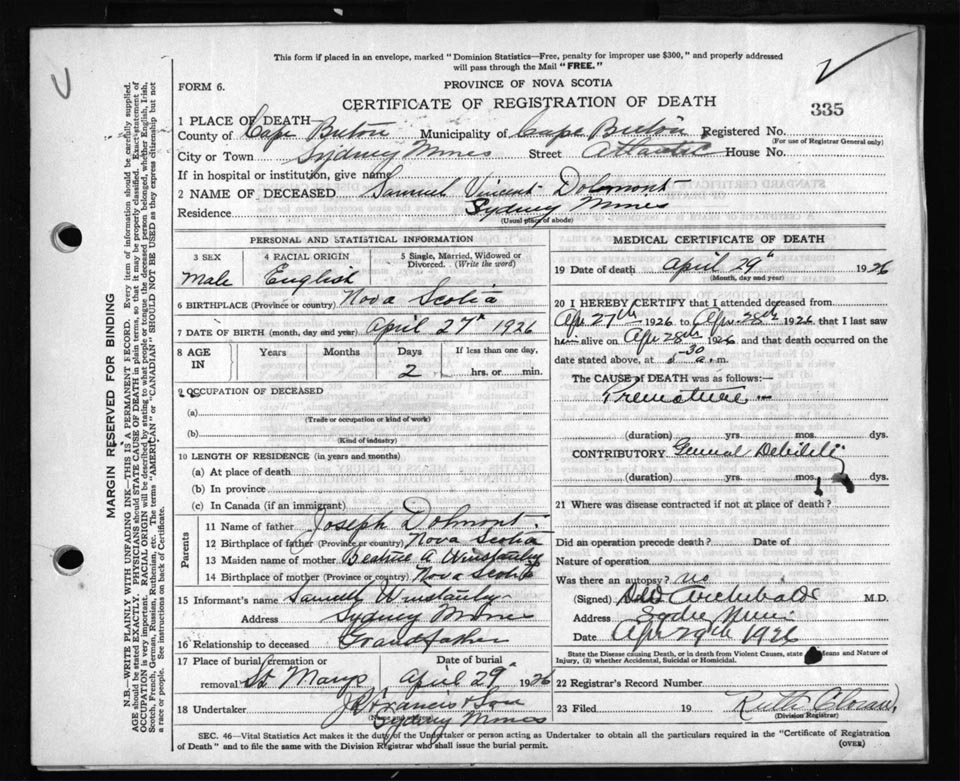 This form if placed in an envelope, marked "Dominion Statistics—Free, penalty for improper use $300," and properly addressed
will pass through the Mail "FREE."
FORM 6.
PROVINCE OF NOVA SCOTIA
CERTIFICATE OF REGISTRATION OF DEATH
335
1 PLACE OF DEATH
County of Cape Breton Municipality of Cape Breton Registered No.
(For use of Registrar General only)
City or Town Sydney Mines Street Atlantic House No.
If in hospital or institution, give name
2 NAME OF DECEASED Samuel Vincent Dolomont
Residence Sydney Mines
(Usual place of abode)
PERSONAL AND STATISTICAL INFORMATION
3 SEX 4 RACIAL ORIGIN 5 Single, Married, Widowed or
Divorced. (Write the word)
Male English
6 BIRTHPLACE (Province or country) Nova Scotia
7 DATE OF BIRTH (month, day and year) April 27th 1926
8 AGE IN Years Months Days If less than one day,
2 hrs. or min.
9 OCCUPATION OF DECEASED
(a)
(Trade or occupation or kind of work)
(b)
(Kind of industry)
10 LENGTH OF RESIDENCE (in years and months)
(a) At place of death
(b) In province
(c) In Canada (if an immigrant)
Parents
11 Name of father Joseph Dolmont
12 Birthplace of father (Province or country) Nova Scotia
13 Maiden name of mother Beatrice A Winstanley
14 Birthplace of mother (Province or country) Nova Scotia
15 Informant's name Samuel Winstanley
Address Sydney Mines
16 Relationship to deceased Grandfather
17 Place of burial, cremation or Date of burial
removal St. Marys April 29th 1926
18 Undertaker J A Francis & Son
Sydney Mines
MEDICAL CERTIFICATE OF DEATH
19 Date of death April 29th 1926
(Month, day and year)
20 I HEREBY CERTIFY that I attended deceased from
Apr 27th 1926 to Apr 28th 1926 that I last saw
him alive on Apr 28th 1926 and that death occurred on the
date stated above, at 30 a. m.
The CAUSE of DEATH was as follows:—
Premature
(duration) yrs. mos. dys.
CONTRIBUTORY General Debility
(duration) yrs. mos. dys.
21 Where was disease contracted if not at place of death?
Did an operation precede death? Date of
Nature of operation
Was there an autopsy? no
(Signed) Archibald M.D.
Address Sydney Mines
Date Apr 29th 1926
State the Disease causing Death, or in Death from Violent Causes, state Means and Nature of
Injury, (2) whether Accidental, Suicidal or Homicidal.
22 Registrar's Record Number
23 Filed 19 Ruth
(Division Registrar)
SEC. 46—Vital Statistics Act makes it the duty of the Undertaker or person acting as Undertaker to obtain all the particulars required in the "Certificate of Registration
of Death" and to file the same with the Division Registrar who shall issue the burial permit. (OVER)
MARGIN RESERVED FOR BINDING
N.B.—WRITE PLAINLY WITH UNFADING INK—THIS IS A PERMANENT RECORD. Every item of information should be carefully supplied.
AGE should be stated EXACTLY. PHYSICIANS should STATE CAUSE OF DEATH in plain terms, so that it may be properly classified. Exact statement of
OCCUPATION is very important. RACIAL ORIGIN will be described by stating to what people or tongue the deceased person belonged, whether English, Irish,
Scotch, French, German, Russian, Ruthenian, etc. The terms "AMERICAN" or "CANADIAN" SHOULD NOT BE USED as they express citizenship but not
a race or people. See instructions on back of Certificate.